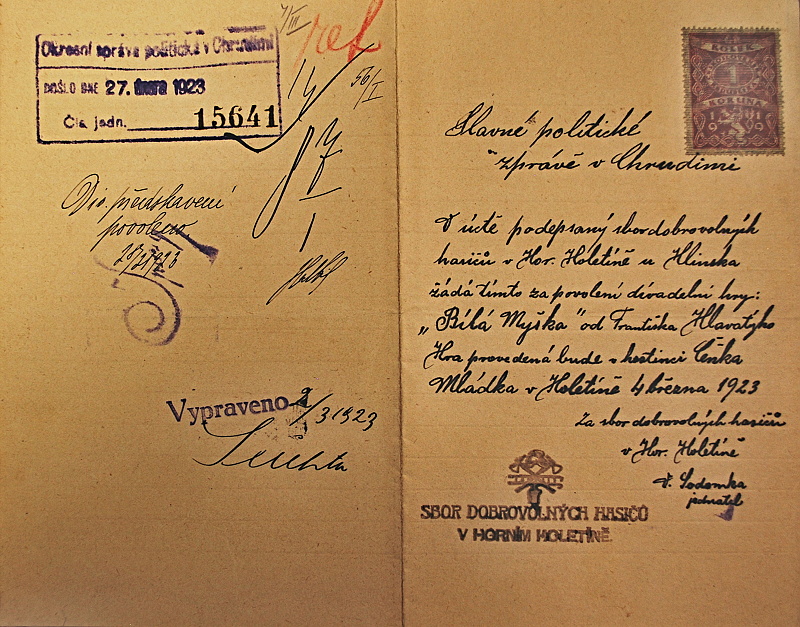 Okresní správa politická v Chrudimi
DOŠLO DNE 27. února 1923
Čís. jedn. 15641
7/III
14
56/I
Div. představení
povoleno
28/2 1923
Vypraveno 2/3 1923
KOLEK
1
KORUNA
1919
Slavné politické
zprávě v Chrudimi
V úctě podepsaný sbor dobrovolných
hasičů v Hor. Holetíně u Hlinska
žádá tímto za povolení divadelní hry:
„Bílá Myška" od Františka Hlavatýho
Hra provedená bude v hostinci Čeňka
Mládka v Holetíně 4 března 1923
Za sbor dobrovolných hasičů
v Hor. Holetíně
Sodomka
jednatel
SBOR DOBROVOLNÝCH HASIČŮ
V HORNÍM HOLETÍNĚ.